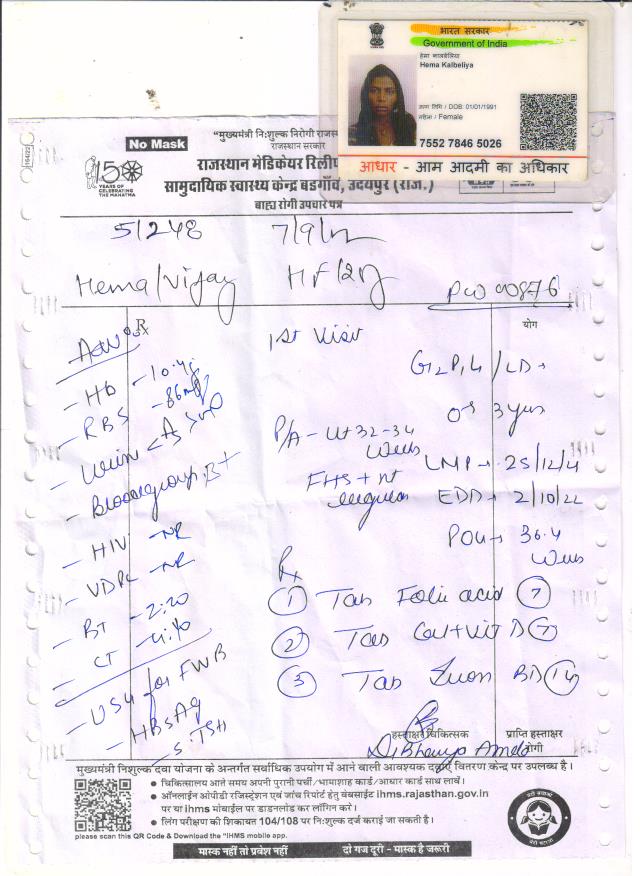 भारत सरकार
Government of India
हेमा कालबेलिया
Hema Kalbeliya
जन्म तिथि / DOB: 01/01/1991
महिला / Female
7552 7846 5026
आधार - आम आदमी का अधिकार
No Mask
"मुख्यमंत्री नि:शुल्क निरोगी राजस
राजस्थान सरकार
150
YEARS OF
CELEBRATING
THE MAHATMA
राजस्थान मेडिकेयर रिलीफ
सामुदायिक स्वास्थ्य केन्द्र बडगाँव, उदयपुर (राज.)
बाह्य रोगी उपचार पत्र
51248 7/9/22
Hema/Vijay HF/2
00876
Rx योग
Adv 1st Visit
G2P1L1 / LD →
- HB - 10.4g
- RBS - 86
3 yrs
- Urine
P/A - Ut 32-34 Weeks
LMP → 25/12/21
- Blood group B+
FHS + nt regular
EDD → 2/10/22
- HIV - NR
POG → 36.4 Weeks
- VDRL - NR
Rx
- BT - 2:20
① Tab Folic acid ⑦
- CT - 4:10
② Tab Cal+Vit D ⑦
- USG for FWB
③ Tab Iron BD ⑭
- HBsAg
- S. TSH
हस्ताक्षर चिकित्सक प्राप्ति हस्ताक्षर
रोगी
मुख्यमंत्री निःशुल्क दवा योजना के अन्तर्गत सर्वाधिक उपयोग में आने वाली आवश्यक दवाएं वितरण केन्द्र पर उपलब्ध है।
• चिकित्सालय आते समय अपनी पुरानी पर्ची/भामाशाह कार्ड/आधार कार्ड साथ लावें।
• ऑनलाईन ओपीडी रजिस्ट्रेशन एवं जांच रिपोर्ट हेतु वेबसाईट ihms.rajasthan.gov.in
पर या ihms मोबाईल पर डाउनलोड कर लॉगिन करे।
• लिंग परीक्षण की शिकायत 104/108 पर नि:शुल्क दर्ज कराई जा सकती है।
please scan this QR Code & Download the "IHMS mobile app.
मास्क नहीं तो प्रवेश नहीं दो गज दूरी - मास्क है जरूरी